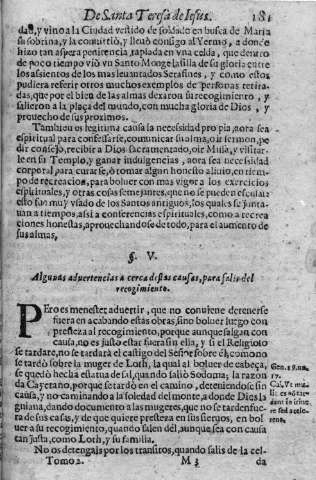 De Santa Teresa de Iesus. 181
dad, y vino a la Ciudad vestido de soldado en busca de Maria
su sobrina, y la conuirtiò, y lleuò consigo al Yermo, a donde
hizo tan aspera penitencia, tapiada en vna celda, que dentro
de poco tiempo viò vn Santo Monge la silla de su gloria entre
los assientos de los mas leuantados Serafines, y como estos
pudiera referir otros muchos exemplos de personas retira-
das, que por el bien de las almas dexaron su recogimiento, y
salieron a la plaça del mundo, con mucha gloria de Dios, y
prouecho de sus proximos.
Tambien es legitima causa la necessidad propia, aora sea
espiritual para confessarse, comunicar su alma, oir sermon, pe-
dir consejo, recibir a Dios Sacramentado, oir Missa, y visitar-
le en su Templo, y ganar indulgencias, aora sea necessidad
corporal para curarse, ò tomar algun honesto aliuio, en tiem-
po de recreacion, para boluer con mas vigor a los exercicios
espirituales, y otras cosas semejantes, que no se pueden escusar
esto fue muy vsado de los Santos antiguos, los quales se junta-
uan a tiempos, assi a conferencias espirituales, como a recrea
ciones honestas, aprouechandose de todo, para el aumento de
sus almas.
§. V.
Algunas aduertencias a cerca destas causas, para salir del
recogimiento.
PEro es menester aduertir, que no conuiene detenerse
fuera en acabando estas obras, sino boluer luego con
presteza al recogimiento, porque aunque salgan con
causa, no es justo estar fuera sin ella, y si el Religioso
se tardare, no se tardarà el castigo del Señor sobre èl, como no
se tardò sobre la muger de Loth, la qual al boluer de cabeça,
se quedò hecha estatua de sal, quando saliò Sodoma; la razon
da Cayetano, porque se tardò en el camino, deteniendose sin
causa, y no caminando a la soledad del monte, a donde Dios la
guiaua, dando documento a las mugeres, que no se tarden fue-
ra de sus casas, y de que quiere presteza en sus sieruos, en bol-
uer a su recogimiento, quando salen dèl, aunque sea con causa
tan justa, como Loth, y su familia.
Gen. 19. nu.
17.
No os detengais por los transitos, quando salis de la cel-
Tomo 2. M 3 da